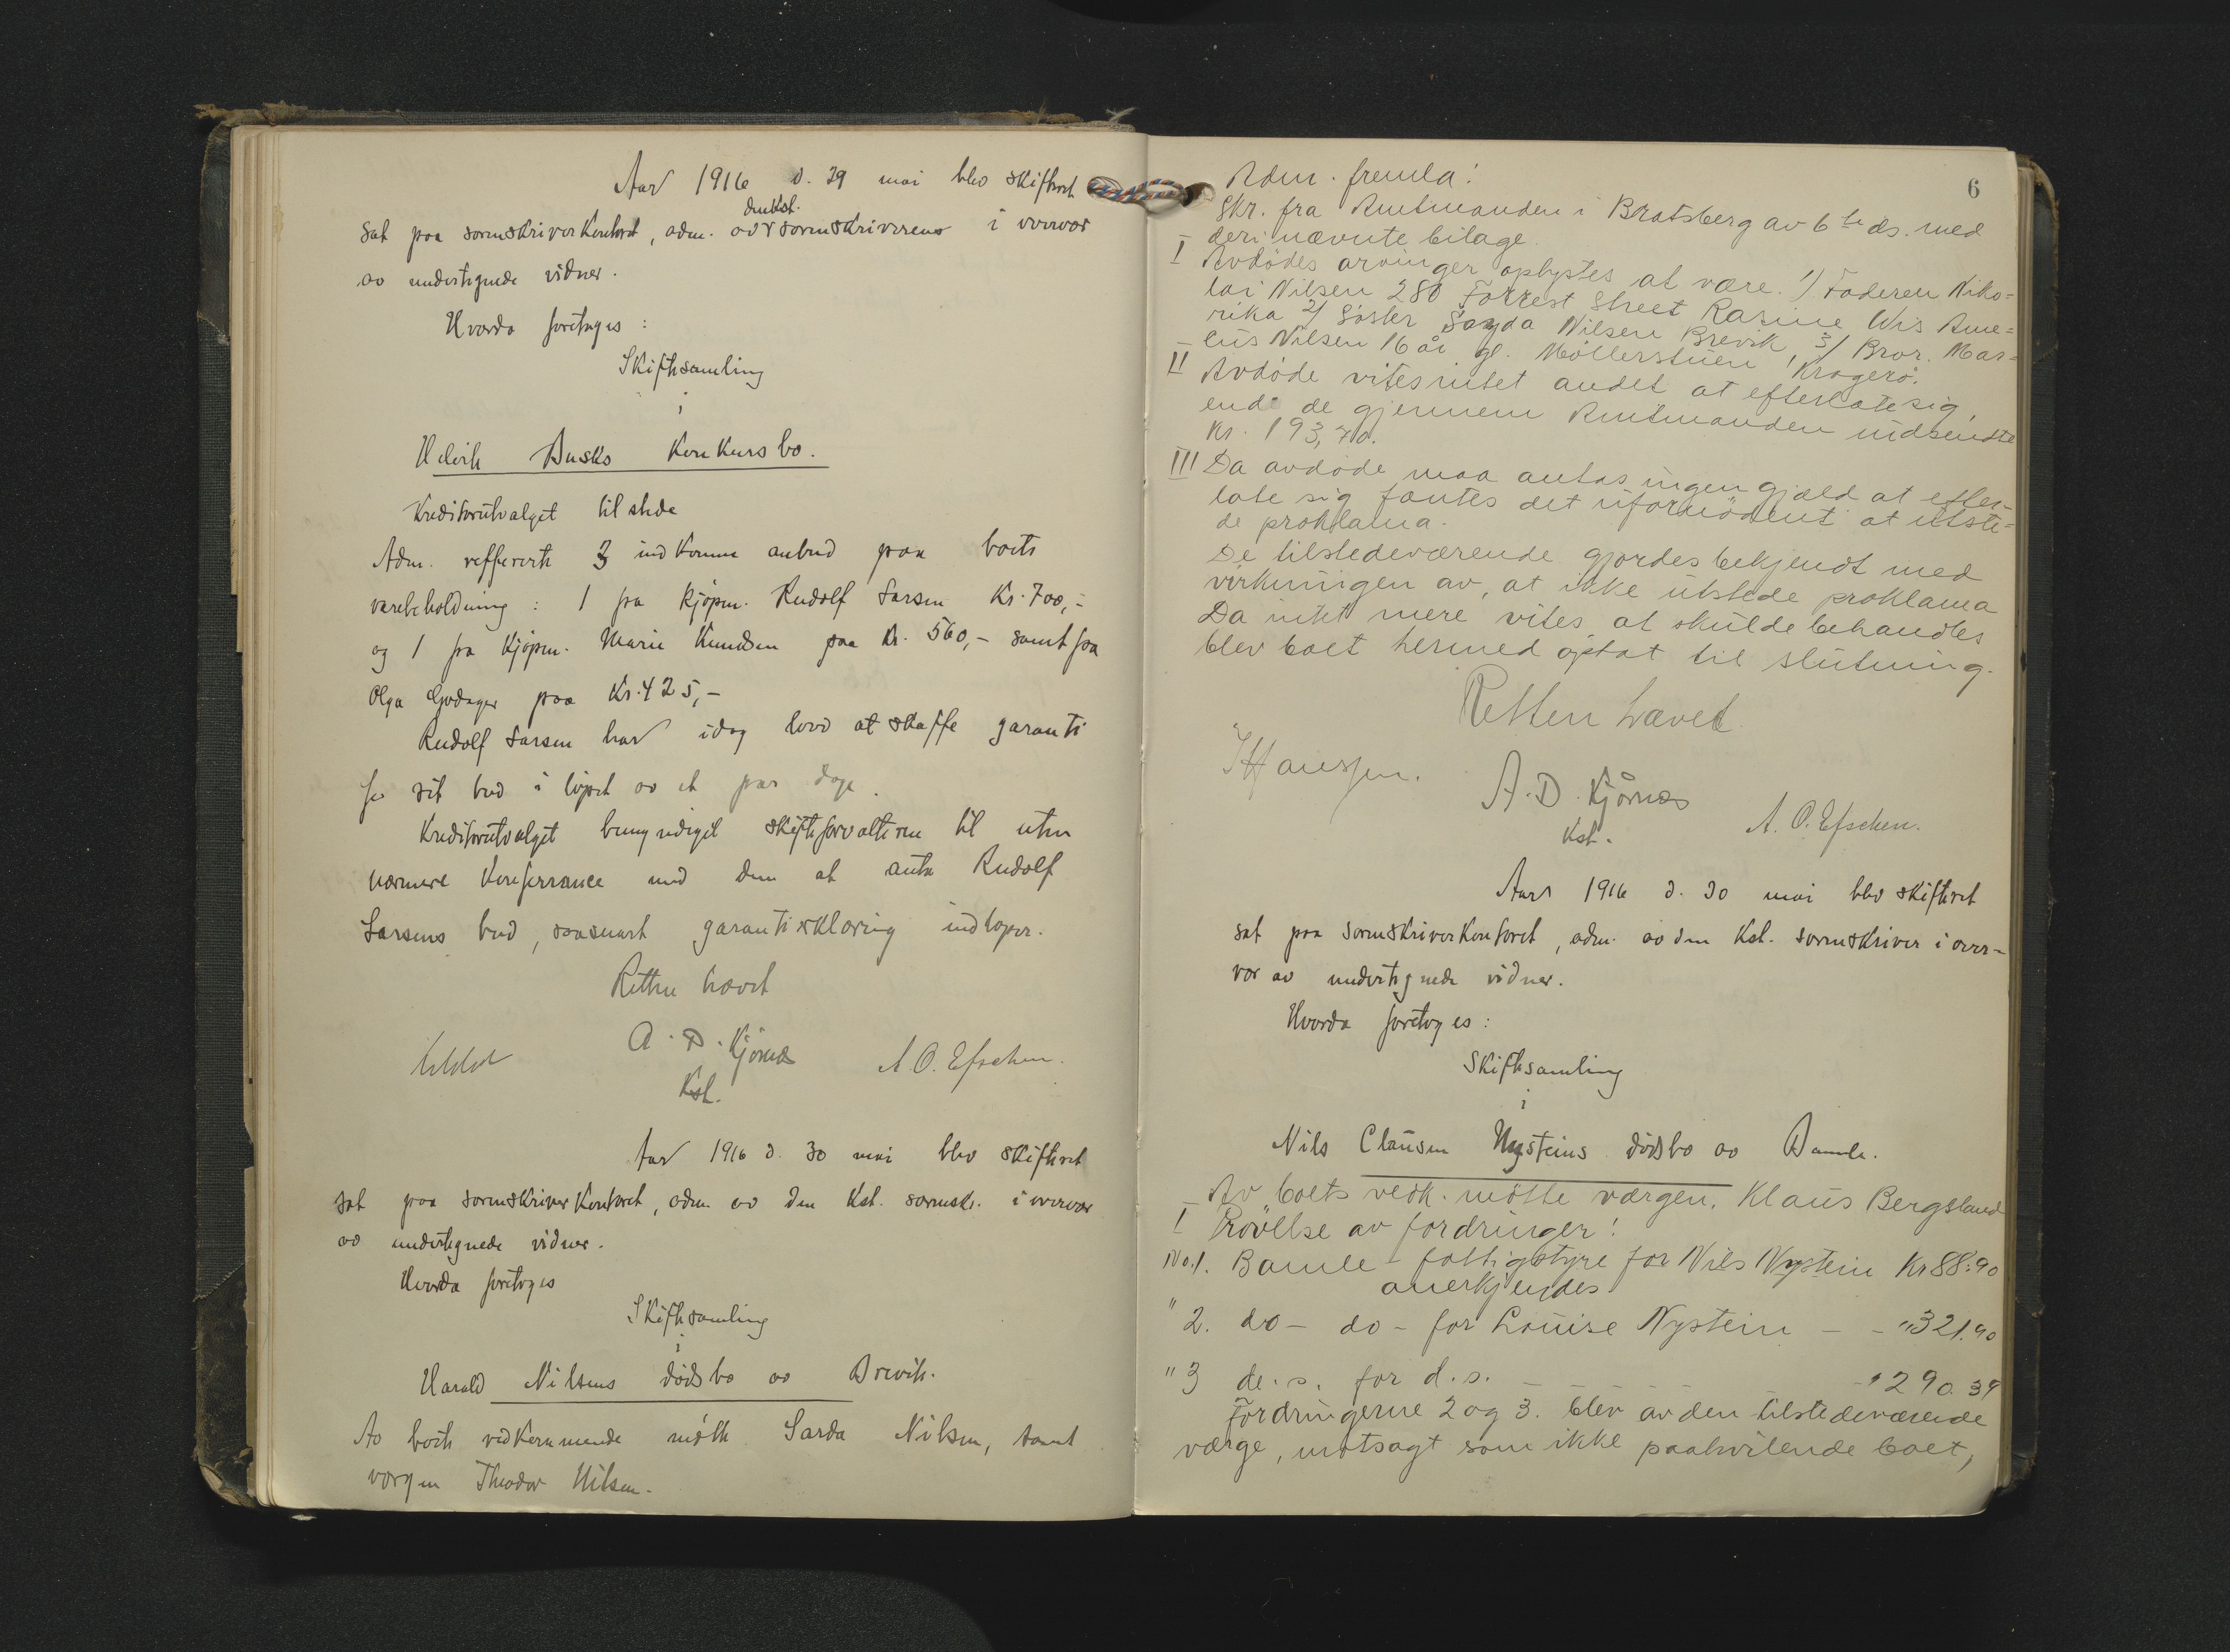 Aar 1916 d. 29 mai blev skifteret
den kst.
sat paa sorenskriverkontoret, adm. av sorenskriveren i overvær
av undertegnede vidner.
Hvorda foretoges :
Skiftesamling
i
Busks Konkursbo.
Kreditorutvalget tilstede
Adm. refererte 3 indkomne anbud paa boets
varebeholdning : 1 fra kjøpm. Rudolf Larsen Kr. 700,-
og 1 fra kjøpm. Marie Knudsen paa kr. 560,- samt fra
Olga Godager paa Kr. 425,-
Rudolf Larsen har idag lovd at skaffe garanti
for sit bud i løpet av et par dage.
Kreditorutvalget bemyndiget skifteforvalteren til uten
nærmere konferrance med dem at anta Rudolf
Larsens bud, saasnart garantierklæring indløper.
Retten hævet
A. D. Kjørnæs
Kst.
A. O. Efschen.
Aar 1916 d. 30 mai blev skifteret
sat paa sorenskriverkontoret, adm. av den kst. sorenskr. i overvær
av undertegnede vidner.
Hvorda foretoges
Skiftesamling
i
Harald Nilsens dødsbo av Brevik.
Av boets vedkommende møtte Sarda Nilsen, samt
vergen Theodor Nilsen.
6
Adm. fremla:
Skr. fra Amtmanden i Bratsberg av 6te ds. med
deri nævnte bilage.
I Avdødes arvinger oplystes at være. 1/ Faderen Niko=
lai Nilsen 280 Forrest Street Rasine Wis Ame=
rika 2/ Søster Sagda Nilsen Brevik, 3/ Bror. Mar=
eus Nilsen 16 år gl. Møllerstuen, Kragerø.
II Avdøde vites intet andet at efterlate sig,
end de gjennem Amtmanden indsendte
kr. 193,70.
III Da avdøde maa antas ingen gjæld at efter-
late sig fantes det ufornødent at utste=
de proklama.
De tilstedeværende gjordes bekjendt med
virkningen av, at ikke utstede proklama
Da intet mere vites at skulde behandles
blev boet hermed optat til slutning.
Retten hævet
Hanssen.
A. D. Kjørnæs
Kst.
A. O. Efschen.
Aar 1916 d. 30 mai blev skifteret
sat paa sorenskriverkontoret, adm. av den kst. sorenskriver i over-
vær av undertegnede vidner.
Hvorda foretoges :
Skiftesamling
i
Nils Clausen Nysteins dødsbo av Bamle.
Av boets vedk. møtte værgen, Klaus Bergsland
I Prøvelse av fordringer!
No. 1. Bamle fattigstyre for Nils Nystein Kr 88:90
anerkjendes
" 2. do - do - for Louise Nystein - - " 321.90
" 3 de. s. for d. s. - - " 290.39
Fordringerne 2 og 3. blev av den tilstedeværende
værge, motsagt som ikke paahvilende boet,